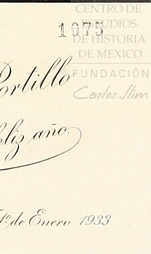 CENTRO DE
ESTUDIOS
DE HISTORIA
DE MEXICO
FUNDACIÓN
Carlos Slim
1075
Portillo
feliz año.
1º de Enero 1933